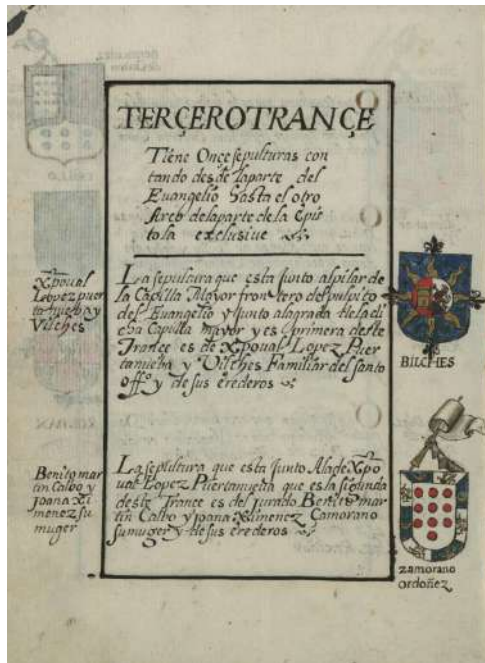 TERÇEROTRANÇE
Tiene Onçe sepulturas con
tando desde laparte del
Euangelio hasta el otro
Arco delaparte de la Epis
tola exclusiue
Xpoual
Lopez puer
ta nueba y
Vilches
La sepultura que esta Junto alpilar de
la Capilla Mayor frontero del pulpito
del Euangelio y Junto alagrada de la di
cha Capilla mayor y es primera deste
Trance es de Xpoual Lopez Puer
tanueba y Vilches Familiar del santo
offº y de sus erederos
BILCHES
Benito mar
tin Calbo y
Joana Xi
menez su
muger
La sepultura que esta Junto Alade Xpo
ual Lopez Puertanueba que es la segunda
deste Trance es del Jurado Benito mar
tin Calbo y Joana Ximenez Camorano
sumuger y de sus erederos
zamorano
ordoñez